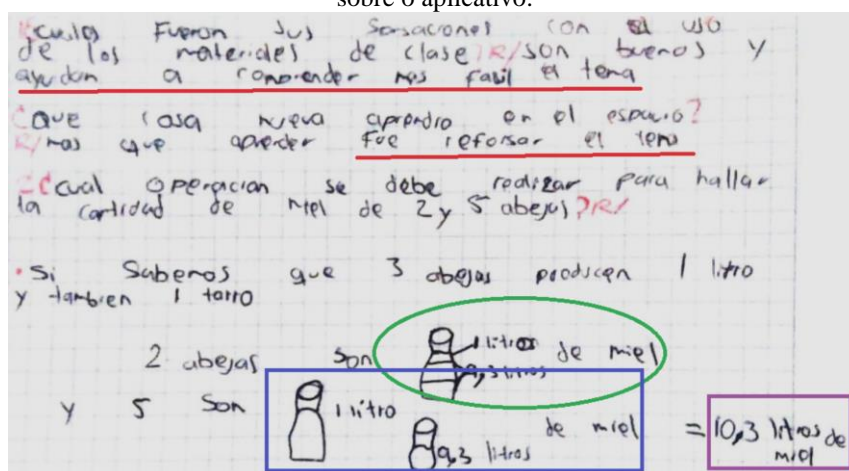 sobre o aplicativo.
¿cuales Fueron sus sensaciones con el uso
de los materiales de clase? R/ son buenos y
ayudan a comprender mas facil el tema
¿que cosa nueva aprendio en el espacio?
R/ mas que aprender fue reforsar el tema
¿cual operacion se debe realizar para hallar
la cantidad de miel de 2 y 5 abejas? R/
• Si Sabemos que 3 abejas producen 1 litro
y tambien 1 tarro
2 abejas son 1 litros de miel
9,3 litros
y 5 son 1 litro de miel = 10,3 litros de miel
9,3 litros